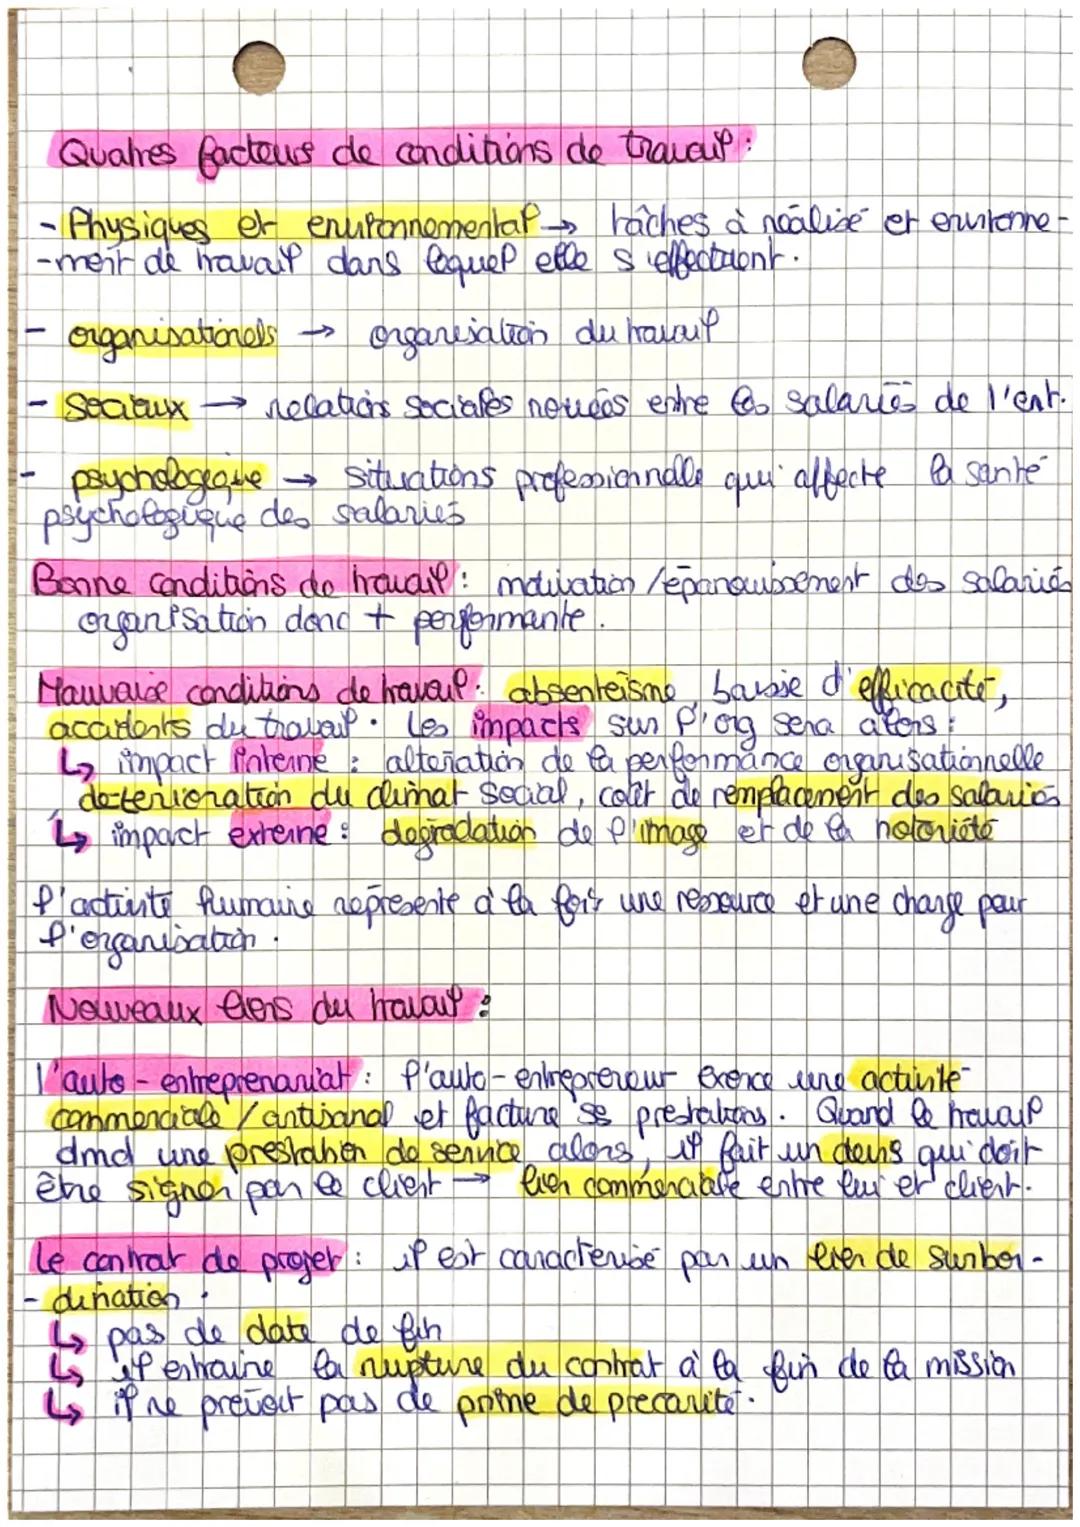 Quatres facteurs de conditions de travail :
- Physiques et environnemental → tâches à réalisé et environne-
-ment de travail dans lequel elle s'effectuent.
- organisationels → organisation du travail
- Sociaux → relations sociales nouées entre les salariés de l'ent.
- psychologique → situations professionnelle qui affecte la santé
psychologique des salariés
Bonne conditions de travail : motivation / épanouissement des salariés
organisation donc + performante.
Mauvaise conditions de travail : absenteïsme, baisse d'efficacité,
accidents du travail. Les impacts sur l'org sera alors :
↳ impact interne : altération de la performance organisationnelle
déterioration du climat social, coût de remplacement des salariés
↳ impact externe : dégradation de l'image et de la notoriété
l'activité humaine représente à la fois une ressource et une charge pour
l'organisation.
Nouveaux liens du travail :
l'auto-entreprenariat : l'auto-entrepreneur exerce une activité
commerciale / artisanal et facture ses prestations. Quand le travail
dmd une prestation de service alors, il fait un devis qui doit
être signer par le client → lien commerciale entre lui et client.
Le contrat de projet : il est caractérisé par un lien de surbor-
- dination.
↳ pas de date de fin
↳ il entraine la rupture du contrat à la fin de la mission
↳ il ne prévoit pas de prime de précarité.